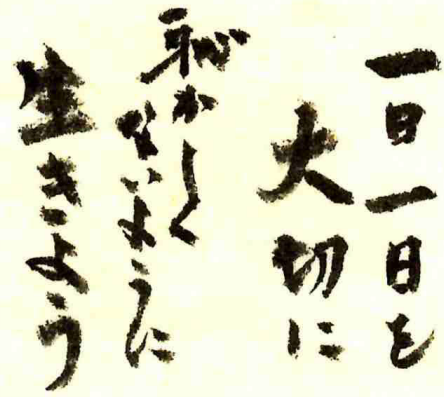 一日一日を
大切に
恥かしく
ないように
生きよう